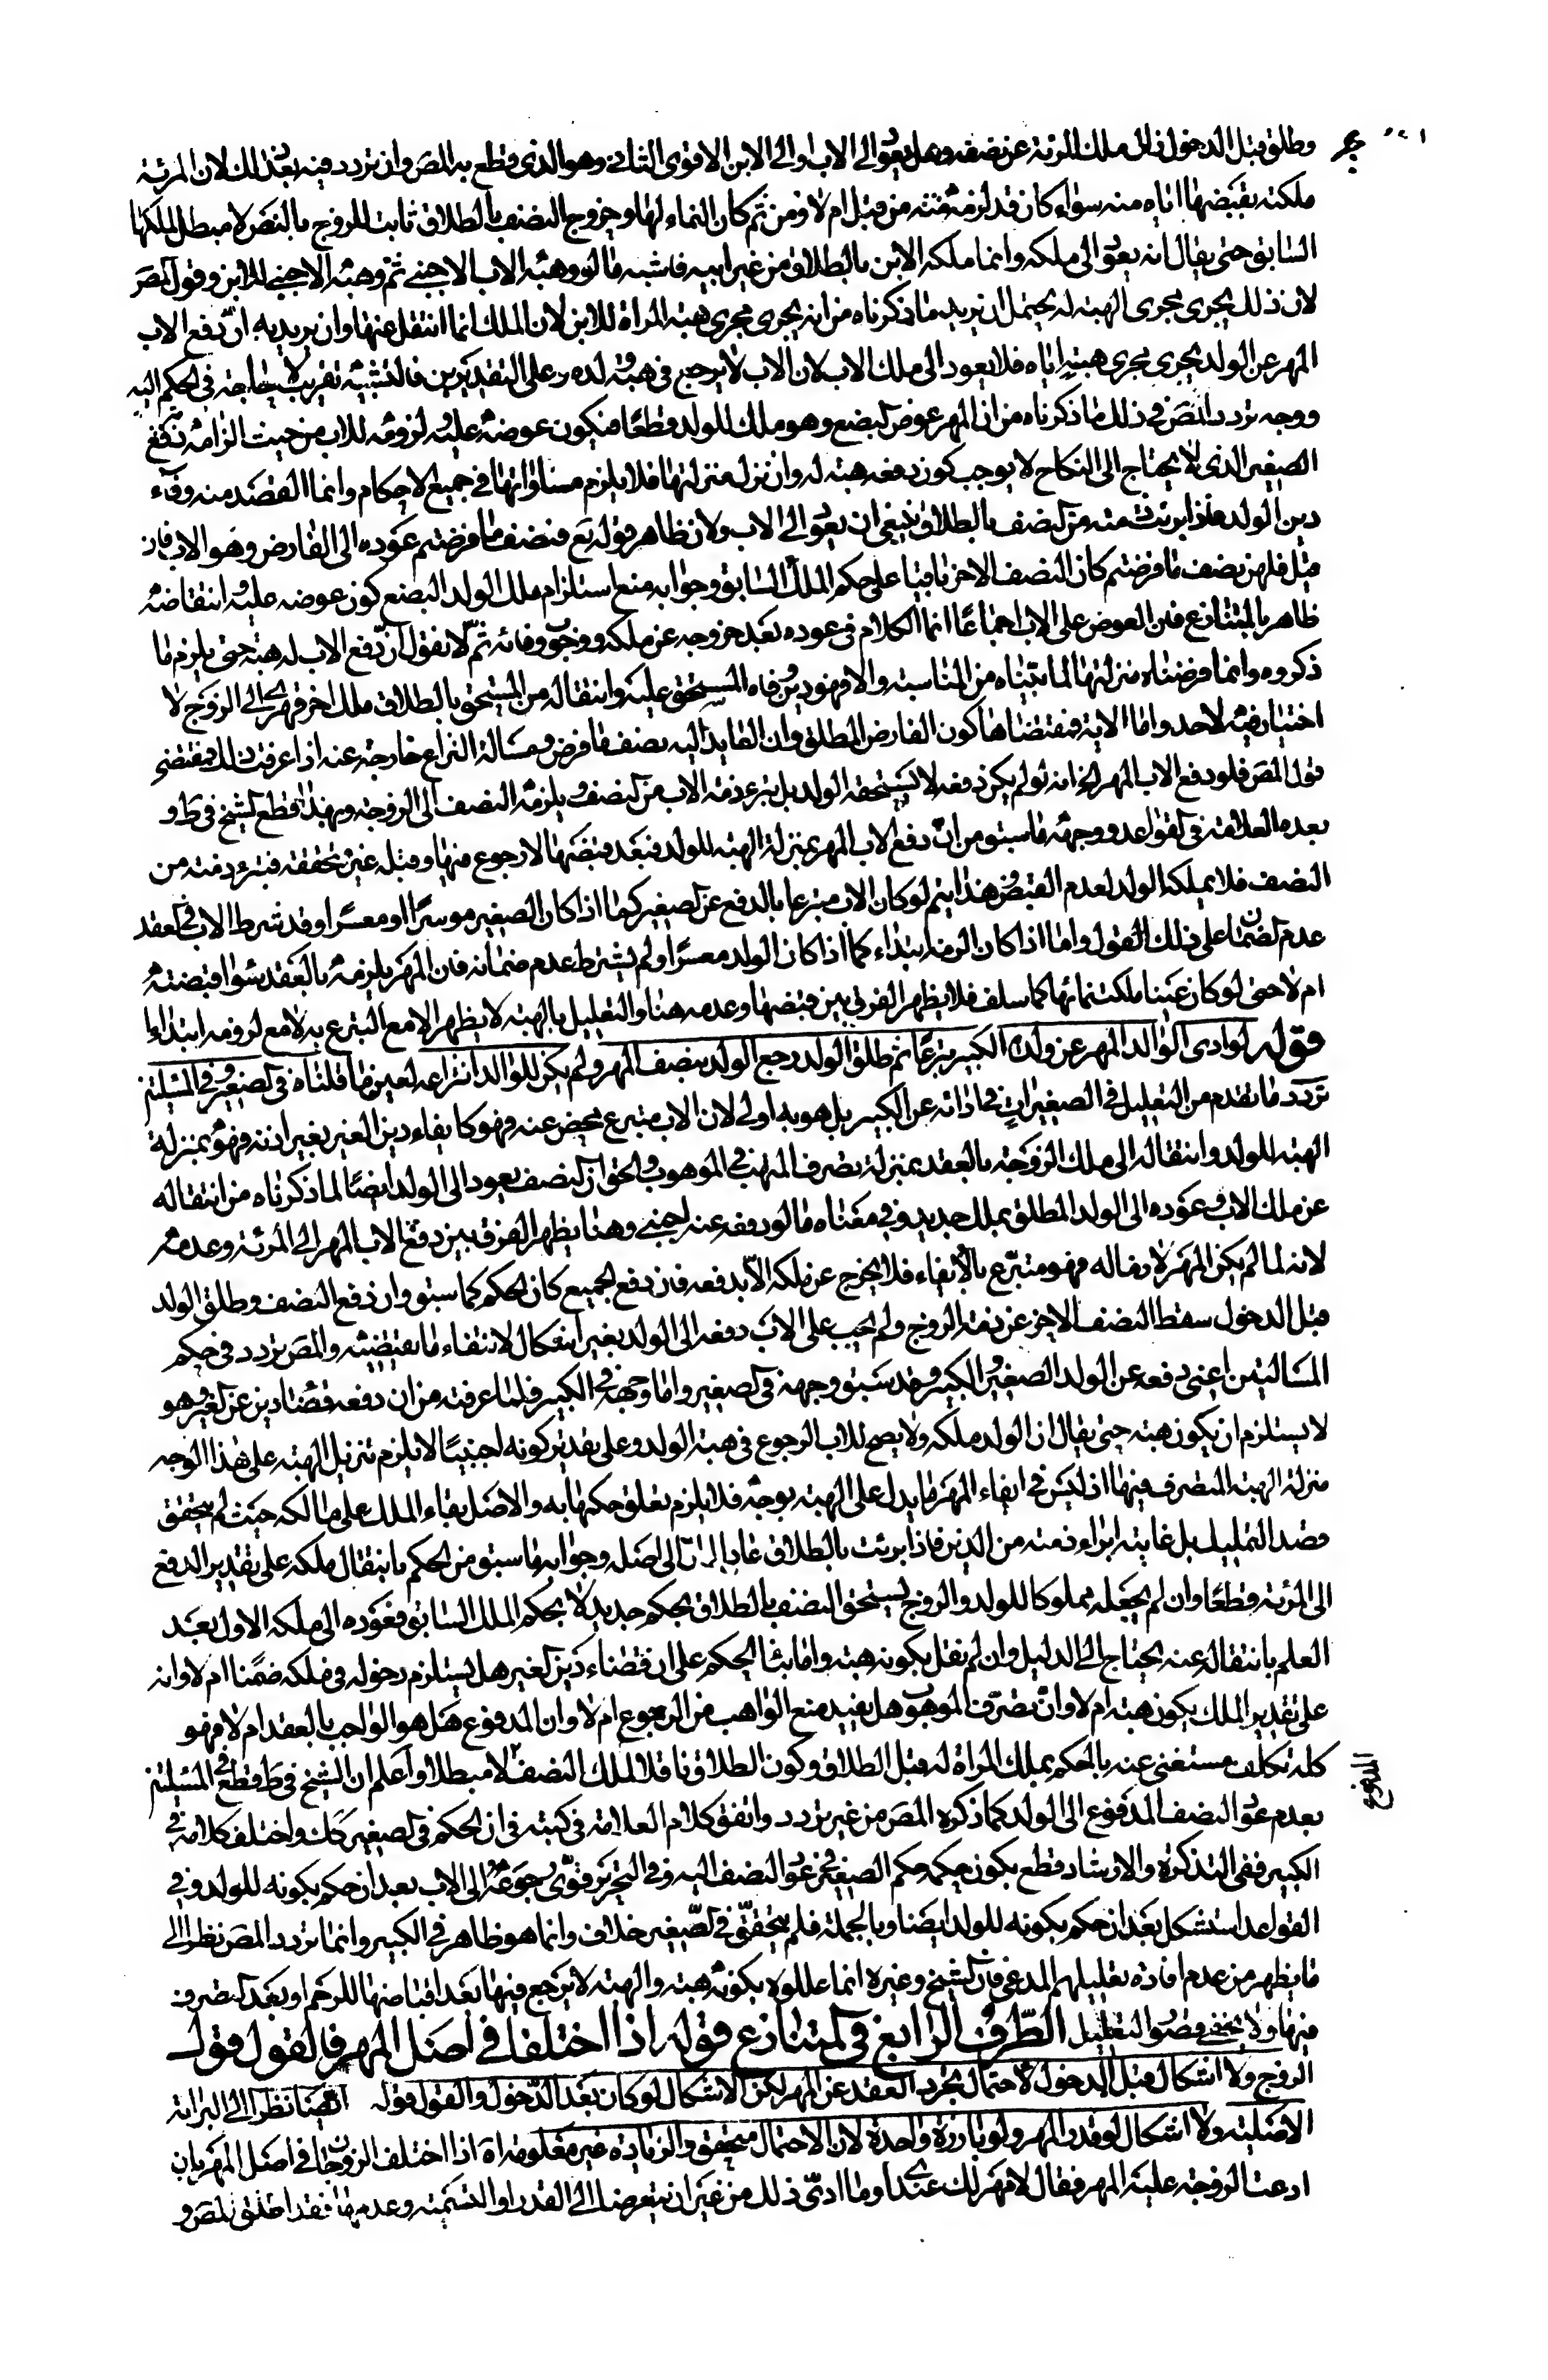 وطلق قبل الدخول زال ملك المرئة عن نصفه وهل يعود الى الاب او الى الابن الاقوى الثانى وهو الذى قطع به المص وان تردد فيه بعد ذلك لان المرئة
ملكته بقبضها اياه منه سواء كان قد لزمه ذمته من قبل ام لا ومن ثم كان النماء لها وخروج النصف بالطلاق ثابت للزوج بالنص لا مبطل لملكها
السابق حتى يقال انه يعود الى ملكه وانما ملكه الابن بالطلاق من غير ابيه فاشبه ما لو وهبه الاب الاجنبي ثم وهبه الاجنبي للابن وقول المص
لان ذلك يجرى مجرى الهبة له يحتمل ان يريد به ما ذكرناه من انه يجرى مجرى هبة المراة للابن لان الملك انما انتقل عنها وان يريد به ان دفع الاب
المهر عن الولد يجرى مجرى هبته اياه فلا يعود الى ملك الاب لان الاب لا يرجع فى هبة ولده وعلى التقديرين فالتشبيه تقريب لا حاجة فى الحكم اليه
ووجه تردد المص فى ذلك ما ذكرناه من ان المهر عوض البضع وهو ملك للولد قطعا فيكون عوضه عليه ولزومه للاب من حيث الزامه نكاح
الصغير الذى لا يحتاج الى النكاح لا يوجب كون دفعه هبة له وان نزل منزلتها فلا يلزم مساواتها فى جميع الاحكام وانما القصد منه وفاء
دين الولد فاذا برئت ذمته من النصف بالطلاق ينبغى ان يعود الى الاب ولان ظاهر قوله تع فنصف ما فرضتم عوده الى الفارض وهو الاب فان
قيل فلهن نصف ما فرضتم كان النصف الاخر باقيا على حكم الملك السابق وجوابه منع استلزام ملك الولد البضع كون عوضه عليه وانتقاضه
ظاهر بالمتنازع فان العوض على الاب اجماعا انما الكلام فى عوده بعد خروجه عن ملكه ووجوب وفائه ثم لا نقول ان دفع الاب له هبة حتى يلزم ما
ذكروه وانما فرضناه منزلتها لما بيناه من المناسبة والا فهو دين وفاه المستحق عليه وانتقاله من المستحق بالطلاق ملك اخر قهرى الى الزوج لا
اختيار فيه لاحد واما الاية فمقتضاها كون الفارض المطلق وان العايد اليه نصف ما فرض ومسالة النزاع خارجة عنه اذا عرفت ذلك فمقتضى
قول المص فلو دفع الاب المهر الخ انه لو لم يكن دفعه لا يستحقه الولد بل تبرء ذمة الاب من النصف ويلزمه النصف الى الزوجة وبهذا قطع الشيخ فى ط و
بعده العلامة فى القواعد ووجهه ما سبق من ان دفع الاب المهر بمنزلة الهبة للولد فبعد قبضها لا رجوع فيها وقبله غير متحققة فتبرء ذمته من
النصف فلا يملكه الولد لعدم القبض وهذا يتم لو كان الاب متبرعا بالدفع عن الصغير كما اذا كان الصغير موسرا او معسرا وقد شرط الاب فى العقد
عدم الضمان على ذلك القول واما اذا كان لازما له ابتداء كما اذا كان الولد معسرا ولم يشترط عدم ضمانه فان المهر يلزمه بالعقد سواء قبضته
ام لا حتى لو كان عينا ملكت نمائها كما سلف فلا يظهر الفرق بين قبضها وعدمه هنا والتعليل بالهبة لا يظهر الا مع التبرع به لا مع لزومه ابتداء
قوله لو ادى الوالد المهر عن ولده الكبير تبرعا ثم طلق الولد رجع الولد بنصف المهر ولم يكن للوالد انتزاعه لعين ما قلناه فى الصغير وفى المسئلتين
تردد ما تقدم من التعليل فى الصغير ات فى ادائه عن الكبير بل هو به اولى لان الاب متبرع محض عنه فهو كايفاء دين الغير بغير اذنه فهو بمنزلة
الهبة للولد وانتقاله الى ملك الزوجة بالعقد بمنزلة تصرف المتهب فى الموهوب والحق ان النصف يعود الى الولد ايضا لما ذكرناه من انتقاله
عن ملك الاب وعوده الى الولد المطلق بملك جديد وفى معناه ما لو دفعه عنه اجنبي وهنا يظهر الفرق بين دفع الاب المهر الى المرئة وعدمه
لانه لما لم يكن المهر لازما له فهو متبرع بالايفاء فلا يخرج عن ملكه الا بدفعه فان دفع الجميع كان الحكم كما سبق وان دفع النصف وطلق الولد
قبل الدخول سقط النصف الاخر عن ذمة الزوج ولم يجب على الاب دفعه الى الولد بغير اشكال لانتفاء ما يقتضيه والمص تردد فى حكم
المسالتين اعنى دفعه عن الولد الصغير والكبير وقد سبق وجهه فى الصغير واما وجهه فى الكبير فلما عرفته من ان دفعه قضاء دين عن الغير وهو
لا يستلزم ان يكون هبة حتى يقال ان الولد ملكه ولا يصح للاب الرجوع فى هبة الولد وعلى تقدير كونه اجنبيا لا يلزم تنزيل الهبة على هذا الوجه
منزلة الهبة المتصرف فيها اذ ليس فى ايفاء المهر ما يدل على الهبة بوجه فلا يلزم تعلق حكمها به والاصل بقاء الملك على مالكه حيث لم يتحقق
قصد التمليك بل غايته ابراء ذمته من الدين فاذا برئت بالطلاق عاد الى اصله وجوابه ما سبق من الحكم بانتقال ملكه على تقدير الدفع
الى المرئة قطعا وان لم يجعله مملوكا للولد والزوج يستحق النصف بالطلاق بحكم جديد لا بحكم الملك السابق فعوده الى ملكه الاول بعد
العلم بانتقاله عنه يحتاج الى الدليل وان لم نقل بكونه هبة واما بناء الحكم على ان قضاء دين الغير هل يستلزم دخوله فى ملكه ضمنا ام لا وانه
على تقدير الملك يكون هبة ام لا وان تصرف الموهوب هل يفيد منع الواهب من الرجوع ام لا وان المدفوع هل هو الواجب بالعقد ام لا فهو
كله تكلف مستغنى عنه بالحكم بملك المراة له قبل الطلاق وكون الطلاق ناقلا لملك النصف لا مبطلا واعلم ان الشيخ فى ط قطع فى المسئلتين
بعدم عود النصف المدفوع الى الولد كما ذكره المص من غير تردد واتفق كلام العلامة فى كتبه فى ان الحكم فى الصغير كك واختلف كلامه فى
الكبير ففى التذكرة والارشاد قطع بكون حكمه حكم الصغير فى عود النصف اليه وفى التحرير قوى رجوعه الى الاب بعد ان حكم بكونه للولد وفى
القواعد استشكل بعد ان حكم بكونه للولد ايضا وبالجملة فلم يتحقق فى الصغير خلاف وانما هو ظاهر فى الكبير وانما تردد المص نظرا الى
ما يظهر من عدم افادة تعليلهم المدعى فان الشيخ وغيره انما عللوه بكونه هبة والهبة لا يرجع فيها بعد اقباضها للرحم او بعد التصرف
فيها ولا يخفى قصور التعليل الطرف الرابع فى التنازع قوله اذا اختلفا فى اصل المهر فالقول قول
الزوج ولا اشكال قبل الدخول لاحتمال تجرد العقد عن المهر لكن الاشكال لو كان بعد الدخول والقول قوله ايضا نظرا الى البرائة
الاصلية ولا اشكال لو قدر المهر ولو بارزة واحدة لان الاحتمال متحقق والزيادة غير معلومة اه اذا اختلف الزوجان فى اصل المهر بان
ادعت الزوجة عليه المهر فقال لا مهر لك عندى او ما ادى ذلك من غير ان يتعرض الى القدر او التسمية وعدمها فقد اطلق المص و